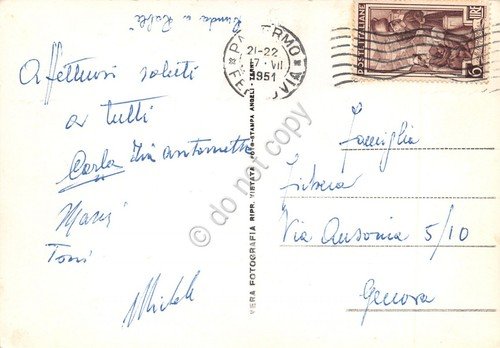 Affettuosi saluti
a tutti
Carla Zia Antonietta
Toni
Michele
PALERMO
21-22
17·VII
1951
FERROVIA
POSTE ITALIANE
LIRE
6
VERA FOTOGRAFIA RIPR. VIETATA FOTO-STAMPA ANGELI -
Famiglia
Via Ausonia 5/10
Genova
do not copy